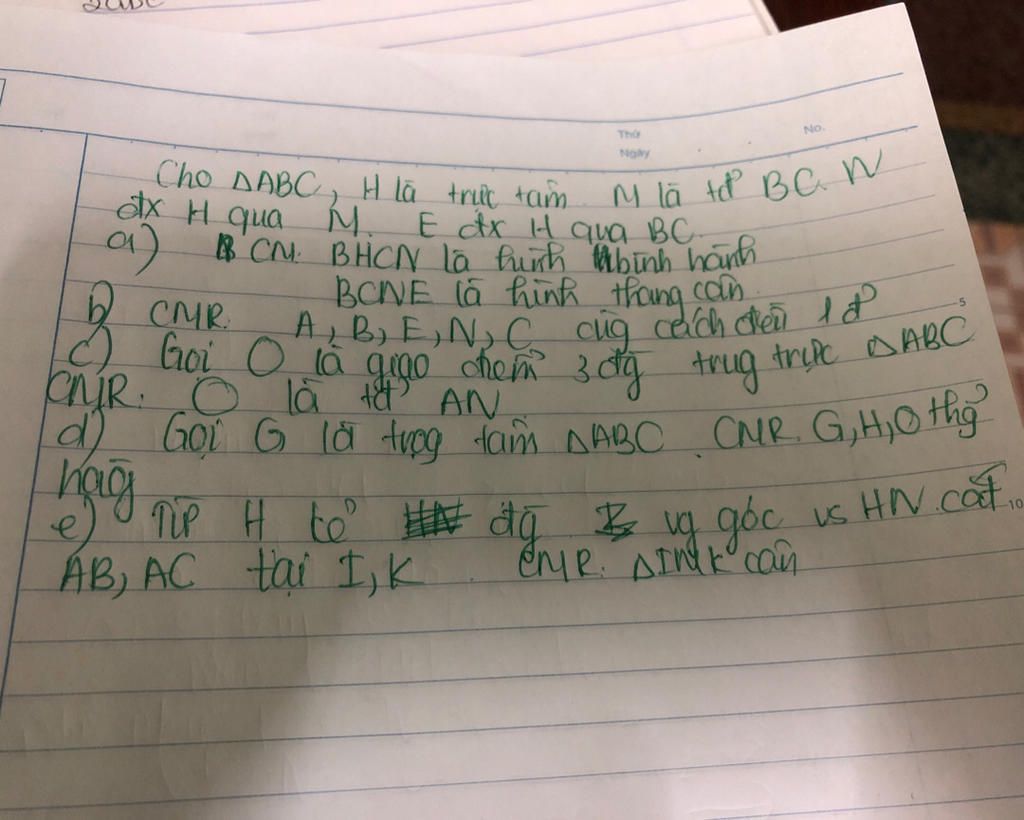 Thứ No.
Ngày
Cho ΔABC, H là trực tâm. M là tđ BC. N
đx H qua M. E đx H qua BC.
a) CM. BHCN là hình bình hành
BCNE là hình thang cân.
b) CMR. A, B, E, N, C cùg cách đều 1 đ' 5
c) Gọi O là giao điểm 3 đg trug trực ΔABC
CMR. O là tđ AN
d) Gọi G là trọg tâm ΔABC. CMR. G, H, O thg
hàg
e) Từ H kẻ đg vg góc vs HN cắt 10
AB, AC tại I, K. CMR. ΔINK cân